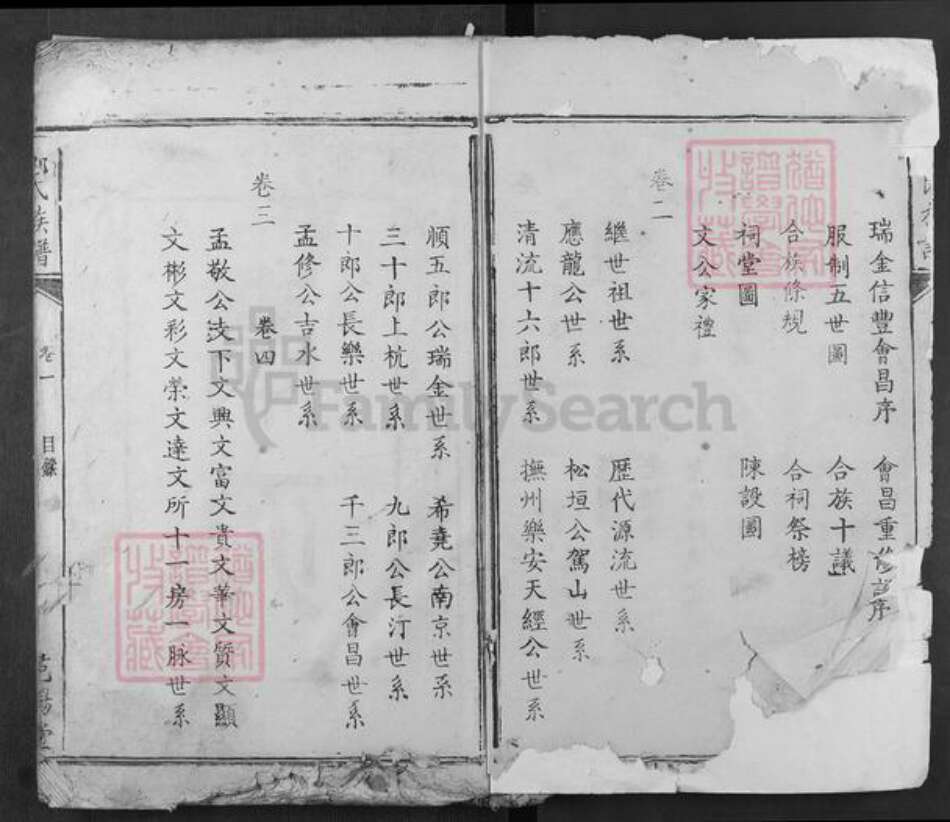 瑞金信豐會昌序 會昌重修譜序
服制五世圖 合族十議
合族條規 合祠祭榜
祠堂圖 陳設圖
文公家禮
卷二
繼世祖世系 歷代源流世系
應龍公世系 松垣公駕山世系
清流十六郎世系 撫州樂安天經公世系
順五郎公瑞金世系 希堯公南京世系
三十郎上杭世系 九郎公長汀世系
十郎公長樂世系 千三郎公會昌世系
孟修公吉水世系
卷三
卷四
孟敬公支下文興文富文貴文華文賢文顯
文彬文彩文榮文達文所十一房一脉世系
氏族譜
卷一
目錄
FamilySearch